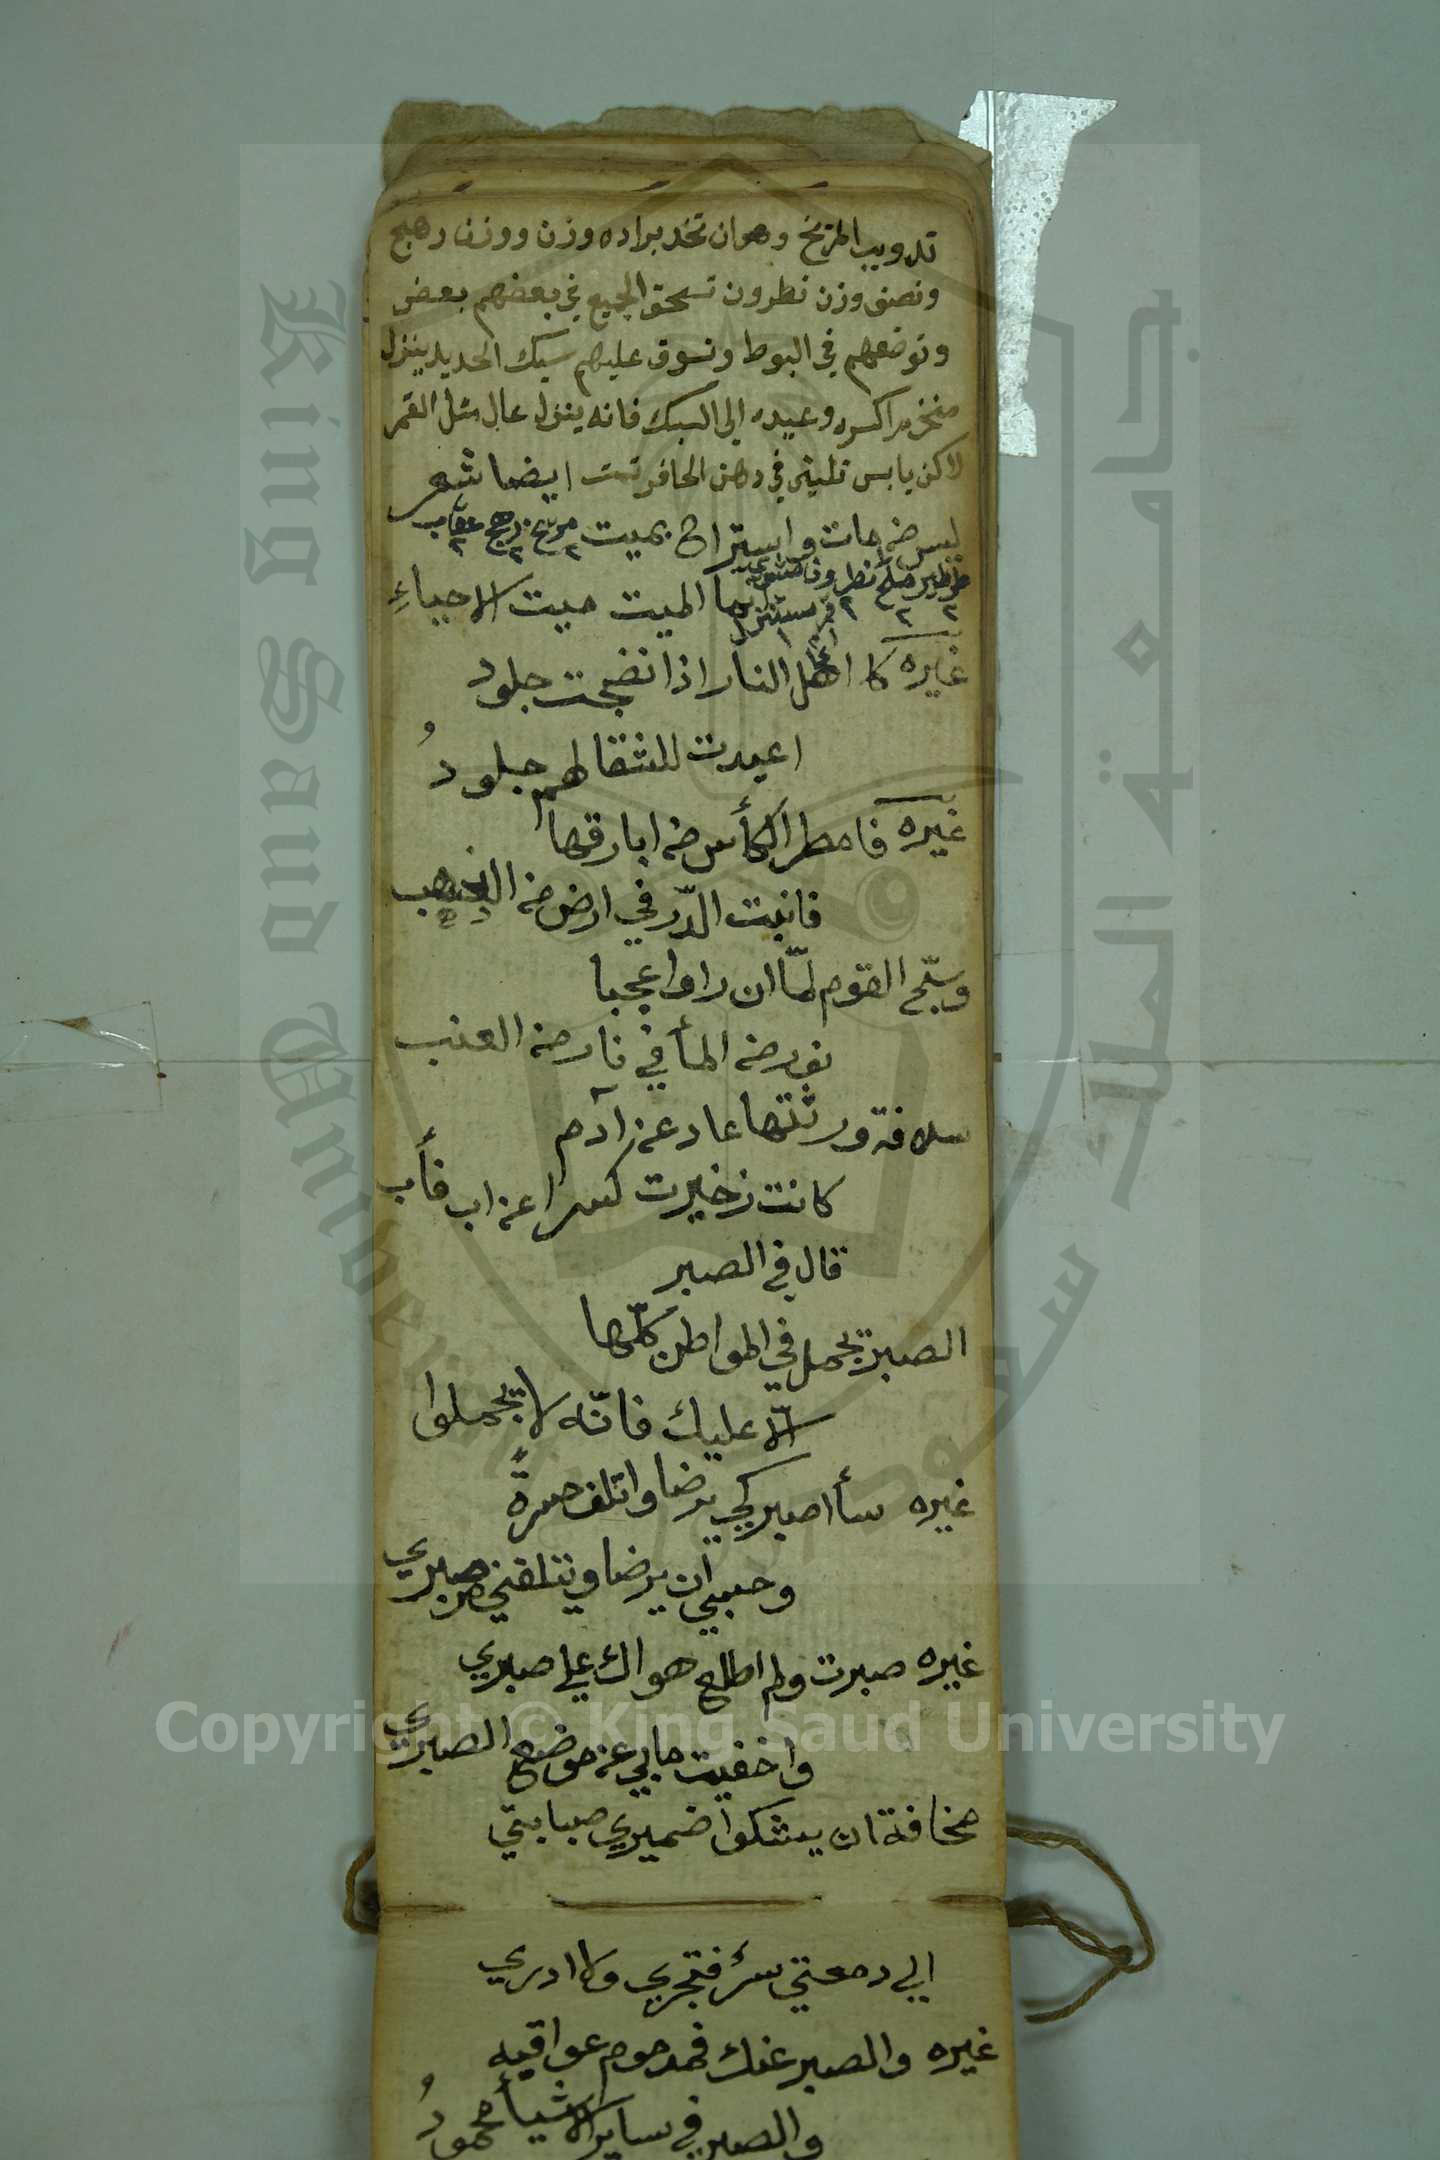 تدويب المريخ وهو ان تخد براده وزن ووزن رهج
ونصف وزن نطرون تسحق الجميع في بعضهم بعض
وتوضعهم في البوط وتسوق عليهم سبك الحديد ينزل
منخر اكسره وعيده الى السبك فانه ينزل عال مثل القمر
لاكن يابس تليينه في دهن الحافر تمت ايضا شعر
ليس من مات واستراح بميت مريخ زرهج عقاب
طرطير ملح نطرون
انما الميت ميت الاحياءِ
غيره كا اهل النار اذا نضجت جلود
اعيدت للشقا لهم جلودُ
غيره فامطر الكأس من ابارقها
فانبت الدّر في ارض من الذهب
وسبّح القوم لمّا ان راوا عجبا
نور من المأ في نار من العنب
سلافة ورثتها عاد عن آدم
كانت زخيرت كسرا عن اب فأب
قال في الصبر
الصبر يجمل في المواطن كلّها
الاّ عليك فانّه لا يجملوا
غيره سأاصبر كي يرضا واتلف حسرةً
وحسبي ان يرضا ويتلفني صبري
غيره صبرت ولم اطلع هواك على صبري
واخفيت مابي عن موضع الصبري
مخافة ان يشكوا ضميري صبابتي
الي دمعتي سرًّ فتجري ولا ادري
غيره والصبر عنك فمدموم عواقبه
والصبر في ساير الاشيأ محمودُ
King Saud University
جامعة الملك سعود
Copyright © King Saud University